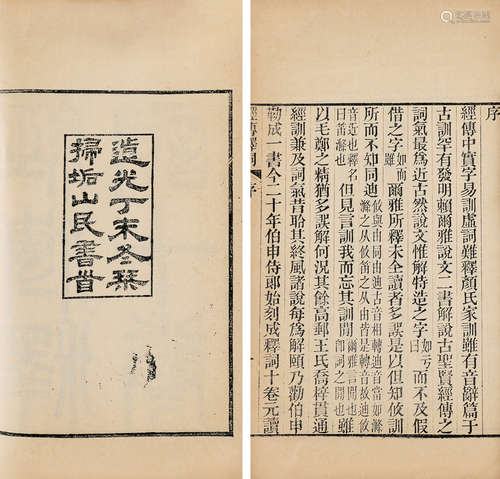 序
經傳中實字易訓虛詞難釋顏氏家訓雖有音辭篇于
古訓罕有發明賴爾雅說文二書解說古聖賢經傳之
詞氣最爲近古然說文惟解特造之字如亏曰而不及假
借之字如而雖爾雅所釋未全讀者多誤是以但知攸訓
所而不知同迪攸與由同由迪古音相轉迪音當如滌滌之从攸笛之从由皆是轉音故迪攸
音近也釋名曰笛滌也但見言訓我而忘其訓閒爾雅言閒也卽詞之閒也雖
以毛鄭之精猶多誤解何況其餘高郵王氏喬梓貫通
經訓兼及詞氣昔聆其終風諸說每爲解頤乃勸伯申
勒成一書今二十年伯申侍郎始刻成釋詞十卷元讀
經傳釋詞 序 一
道光丁未冬琹
掃垢山民書首